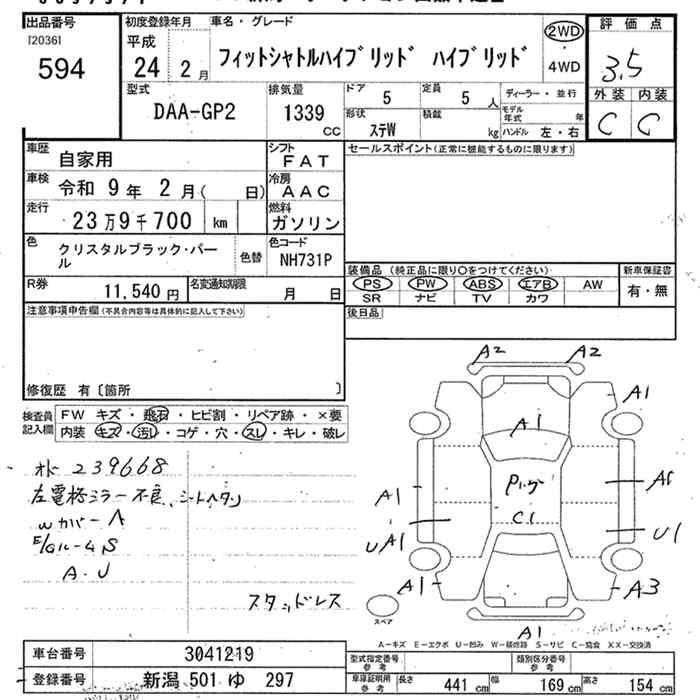 出品番号 初度登録年月 車名・グレード 評価点
[2036]
594
平成
24 2月
フィットシャトルハイブリッド ハイブリッド
2WD
・
4WD
3.5
型式 排気量 ドア 定員 ディーラー・並行 外装 内装
DAA-GP2 1339 CC 5 5 人
モデル年式 年
形状 積載
ステW kg ハンドル 左・右
C C
車歴 自家用 シフト FAT
セールスポイント(正常に機能するものに限ります)
車検 令和 9年 2月( 日) 冷房 AAC
走行 23万9千700 km 燃料 ガソリン
色 クリスタルブラック・パール 色替 色コード NH731P
装備品 (純正品に限り○をつけてください) 新車保証書
PS PW ABS エアB AW 有・無
SR ナビ TV カワ
R券 11,540 円 名変通知期限 月 日
後日品
注意事項申告欄(不具合内容等は具体的に記入して下さい)
修復歴 有〔箇所 〕
検査員記入欄 FW キズ・飛石・ヒビ割・リペア跡・×要
内装 キズ・汚し・コゲ・穴・スレ・キレ・破レ
239668
左電格ミラー不良、シートヘタリ
Wカバー A
A.U
スタッドレス
A2 A2
A1
A1
A1
C1
A1
UA1
U1
A1
A3
A1
スペア
A-キズ E-エクボ U-凹み W-補修跡 S-サビ C-腐食 XX-交換済
車台番号 3041219
型式指定番号 参考 類別区分番号 参考
登録番号 新潟 501 ゆ 297
車庫証明用 参考 長さ 441 cm 幅 169 cm 高さ 154 cm